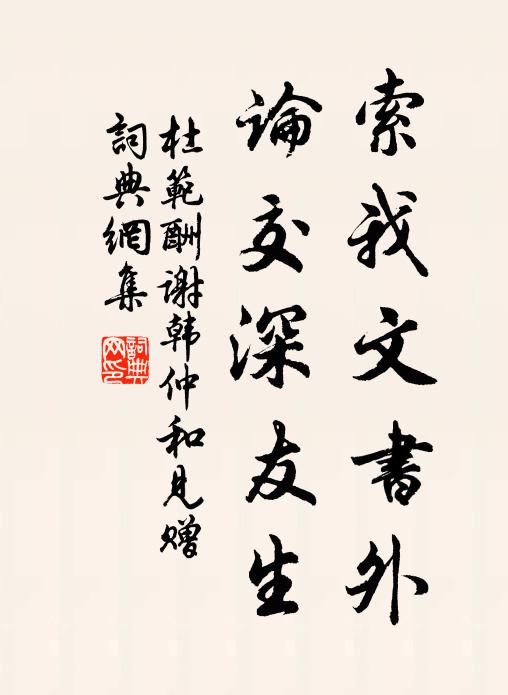 索我文書外
論交深友生
杜範酬谢韩仲和見贈
詞典網集
詞典网印